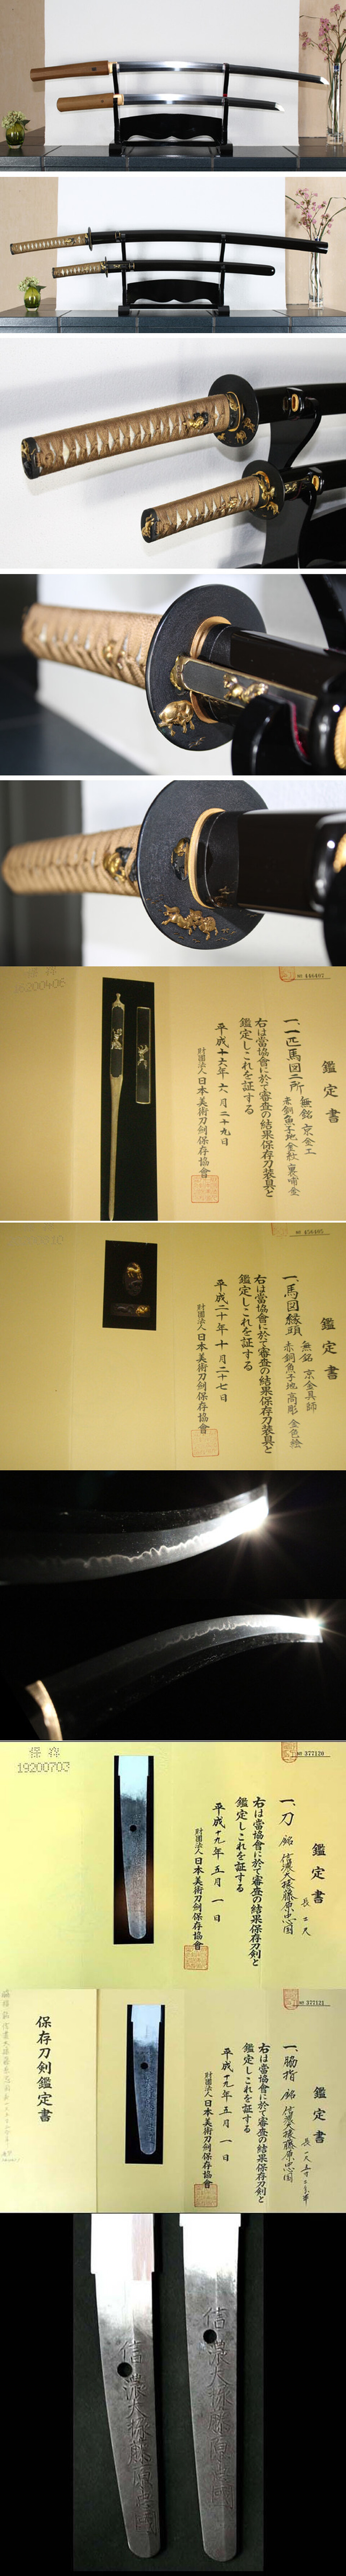 № 446407
鑑定書
一、一匹馬図二所
無銘 京金工
右は當協會に於て審査の結果保存刀装具と
鑑定しこれを証する
平成十六年六月二十九日
財團法人日本美術刀劍保存協會
鑑定書
一、馬図縁頭
無銘 京金具師
赤銅魚子地 高彫 金色絵
右は當協會に於て審査の結果保存刀装具と
鑑定しこれを証する
平成二十年十月二十七日
財團法人日本美術刀劍保存協會
保存
19200703
№ 377120
鑑定書
一、刀 銘 信濃大掾藤原忠國
右は當協會に於て審査の結果保存刀劍と
鑑定しこれを証する
平成十九年五月一日
財團法人日本美術刀劍保存協會
№ 377121
鑑定書
一、脇指 銘 信濃大掾藤原忠國
右は當協會に於て審査の結果保存刀劍と
鑑定しこれを証する
平成十九年五月一日
財團法人日本美術刀劍保存協會
保存刀劍鑑定書
信濃大掾藤原忠國
信濃大掾藤原忠國